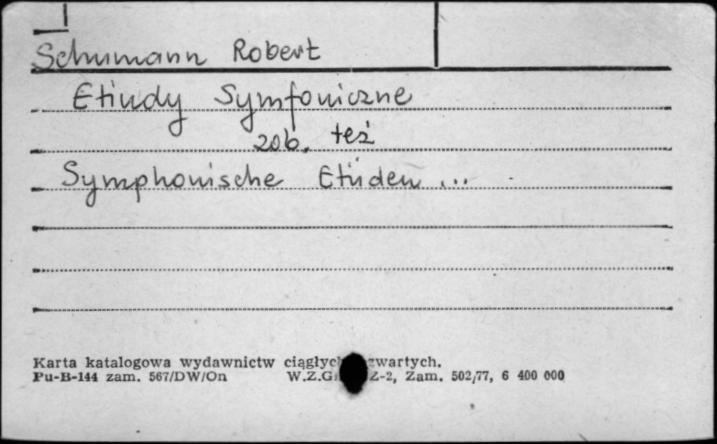 Schumann Robert
Etiudy Symfoniczne
zob. też
Symphonische Etüden ...
Karta katalogowa wydawnictw ciągłych zwartych.
Pu-B-144 zam. 567/DW/On W.Z.G. Z-2, Zam. 502/77, 6 400 000